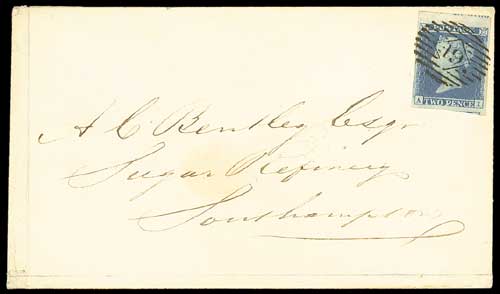 A C Bentley Esqr
Sugar Refinery
Southampton
TWO PENCE